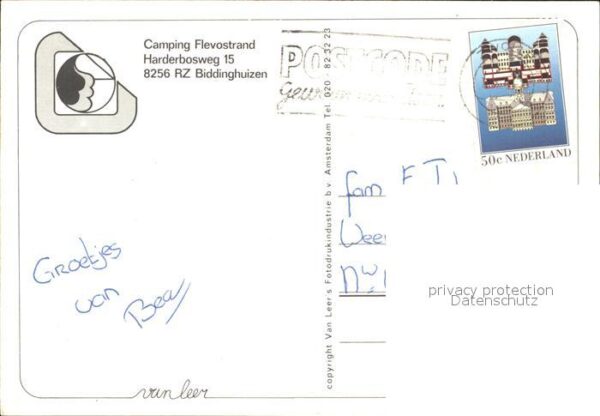 Camping Flevostrand
Harderbosweg 15
8256 RZ Biddinghuizen
POSTCODE
50c NEDERLAND
copyright Van Leer's Fotodrukindustrie b.v. Amsterdam Tel. 020 - 82 32 23
fam F T
Wee
Nw.
Groetjes
van
Bea
privacy protection
Datenschutz
van leer